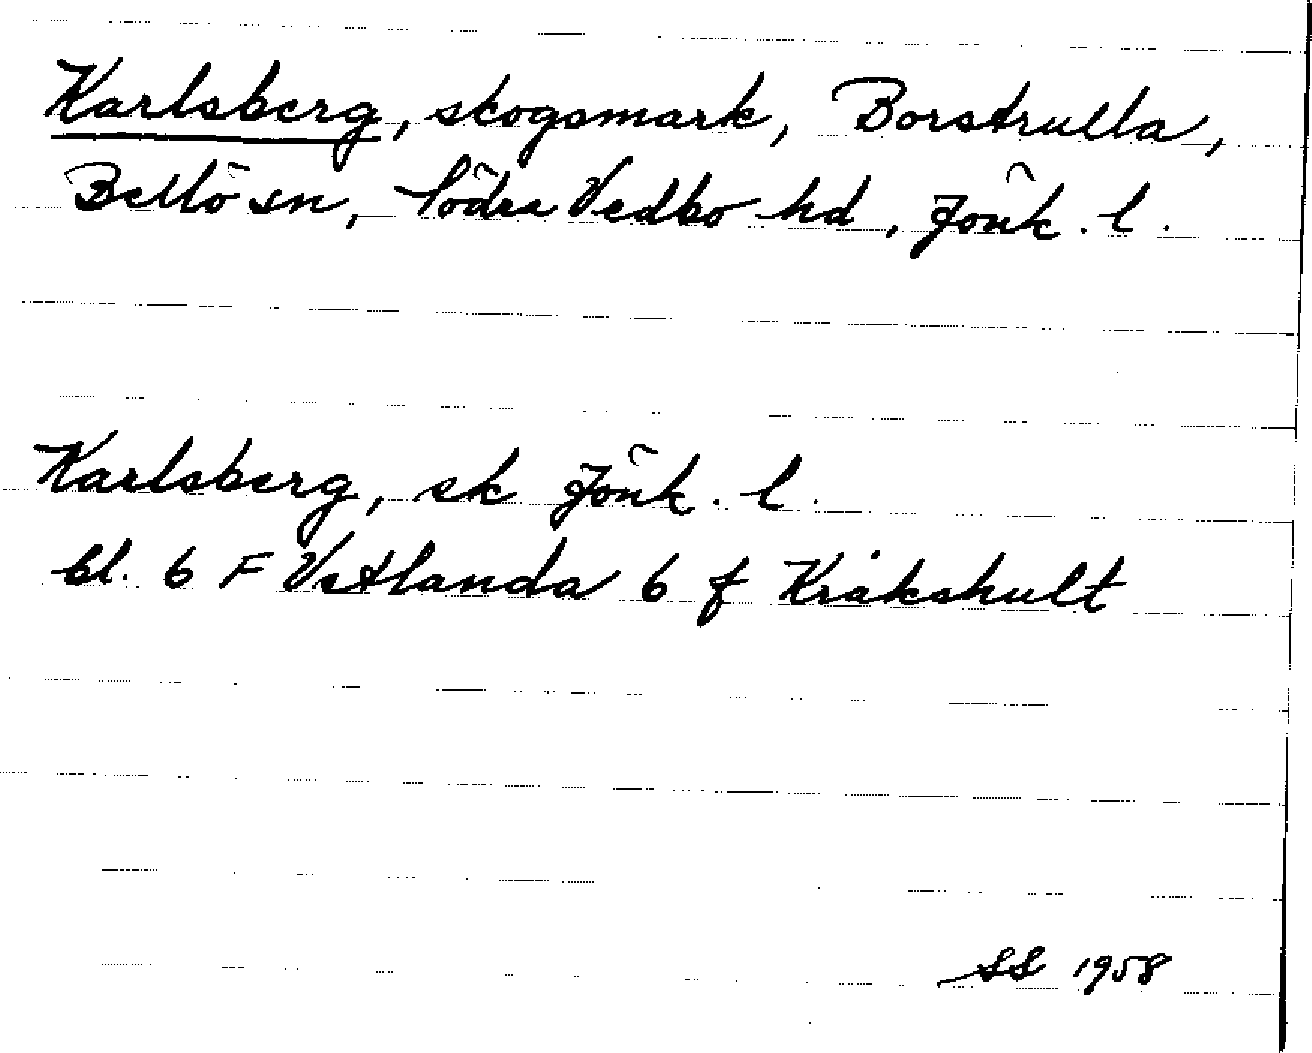 Karlsberg, skogsmark, Borstrulla,
Bellö sn, Södra Vedbo hd, Jönk. l.
Karlsberg, sk Jönk. l.
bl. 6 F Vetlanda 6 f Kråkshult
SS 1958